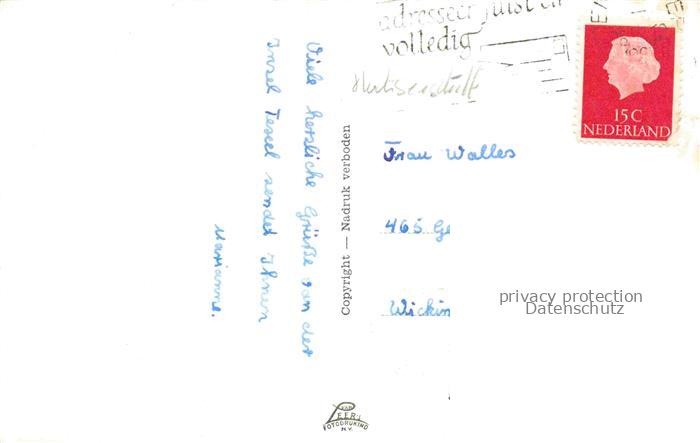 adresseer juist en
volledig
15 C
NEDERLAND
Viele herzliche Grüße von der
Insel Texel sendet Ihnen
Marianne.
Copyright — Nadruk verboden
Frau Walles
465 Ge
Wickin
privacy protection
Datenschutz
VAN
LEER'S
FOTODRUKIND
N.V.